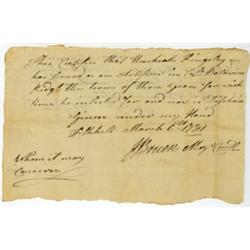 This Certifies that Hachiah Kingsley
has served as an Artificer in Col. Baldwins
Regt the term of three years for wich
time he enlisted for and now is Discharged
Given under my Hand
Fishkill March 6th 1781
J Bruen Maj
Whom it may
Concern